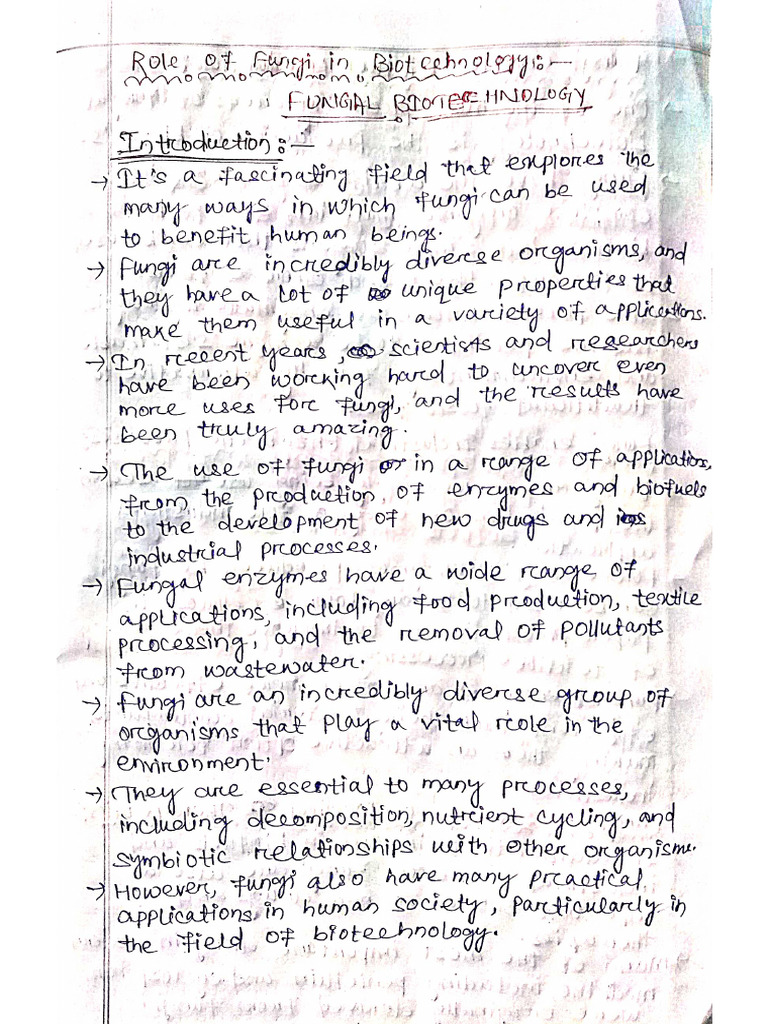 Role of Fungi in Biotechnology:-
FUNGAL BIOTECHNOLOGY
Introduction:-
→ It's a fascinating field that explores the
many ways in which fungi can be used
to benefit human beings.
→ Fungi are incredibly diverse organisms, and
they have a lot of unique properties that
make them useful in a variety of applications.
→ In recent years, scientists and researchers
have been working hard to uncover even
more uses for fungi, and the results have
been truly amazing.
→ The use of fungi in a range of applications,
from the production of enzymes and biofuels
to the development of new drugs and
industrial processes.
→ Fungal enzymes have a wide range of
applications, including food production, textile
processing, and the removal of pollutants
from wastewater.
→ Fungi are an incredibly diverse group of
organisms that play a vital role in the
environment.
→ They are essential to many processes,
including decomposition, nutrient cycling, and
symbiotic relationships with other organisms.
→ However, fungi also have many practical
applications in human society, particularly in
the field of biotechnology.